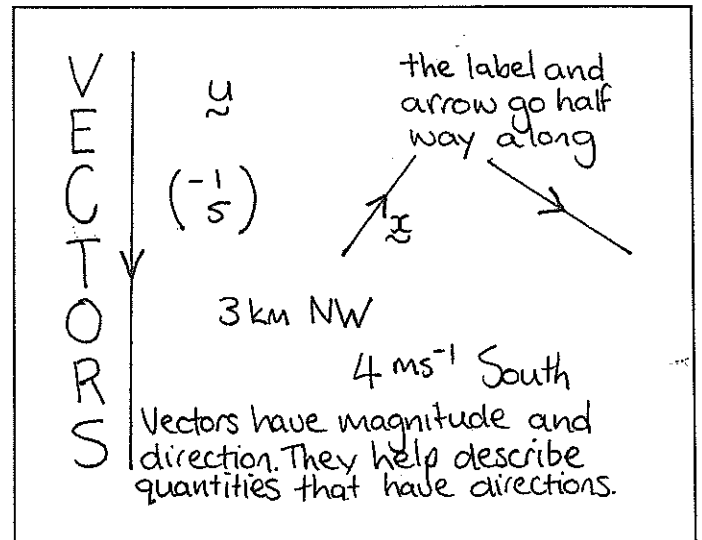 VECTORS
u
the label and
arrow go half
way along
(-1
5)
x
3 km NW
4 ms⁻¹ South
Vectors have magnitude and
direction. They help describe
quantities that have directions.